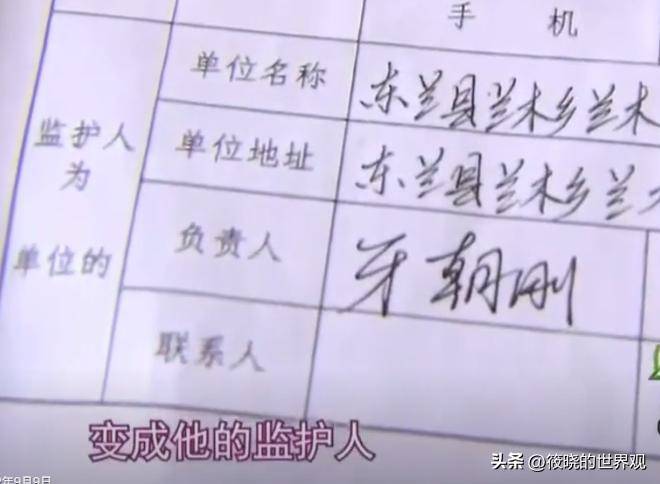 手 机
监护人
为
单位的
单位名称
东兰县兰木乡兰木
单位地址
东兰县兰木乡兰木
负责人
牙朝刚
联系人
变成他的监护人
年9月9日
头条 @筱晓的世界观